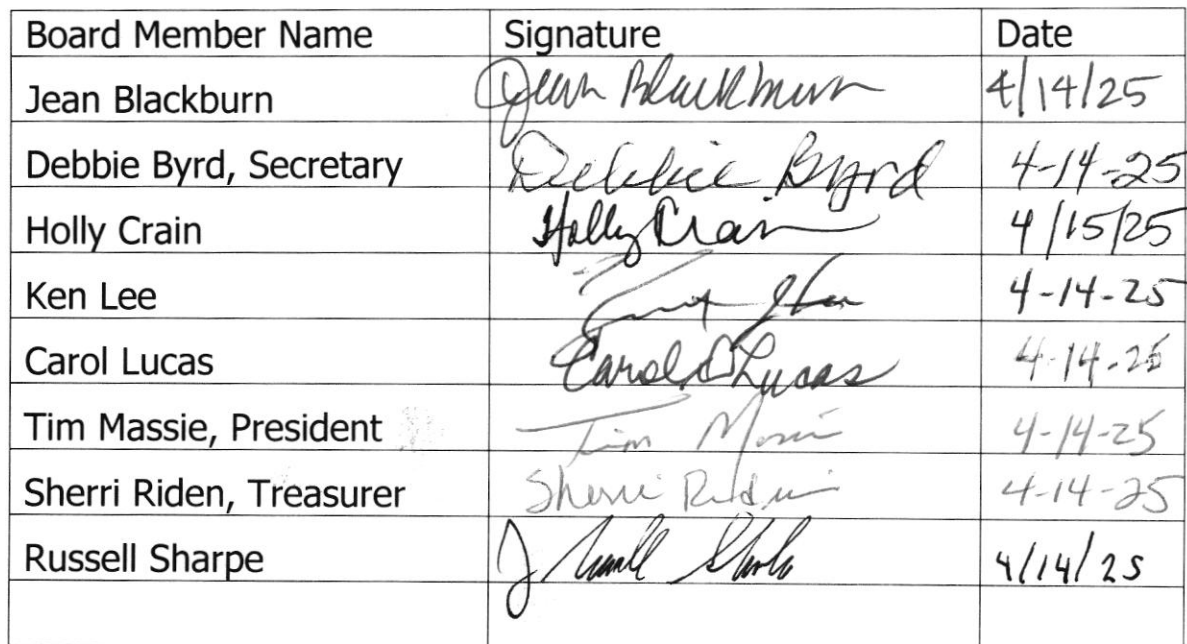 Board Member Name Signature Date
Jean Blackburn Jean Blackburn 4/14/25
Debbie Byrd, Secretary Debbie Byrd 4-14-25
Holly Crain Holly Crain 4/15/25
Ken Lee 4-14-25
Carol Lucas Carol Lucas 4-14-25
Tim Massie, President Tim Massie 4-14-25
Sherri Riden, Treasurer Sherri Riden 4-14-25
Russell Sharpe J Russell Sharpe 4/14/25